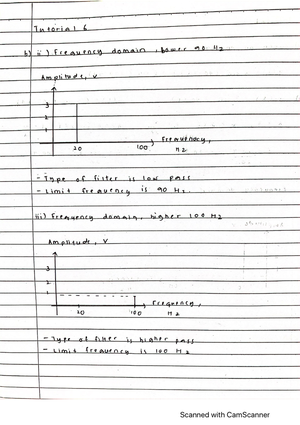 Tutorial 6
b) ii) Frequency domain, lower 90 Hz
Amplitude, V
3
2
1
Frequency,
20 100 Hz
- Type of filter is low pass
- Limit frequency is 90 Hz.
iii) Frequency domain, higher 100 Hz
Amplitude, V
3
2
1
Frequency,
20 100 Hz
- Type of filter is higher pass
- Limit frequency is 100 Hz
Scanned with CamScanner